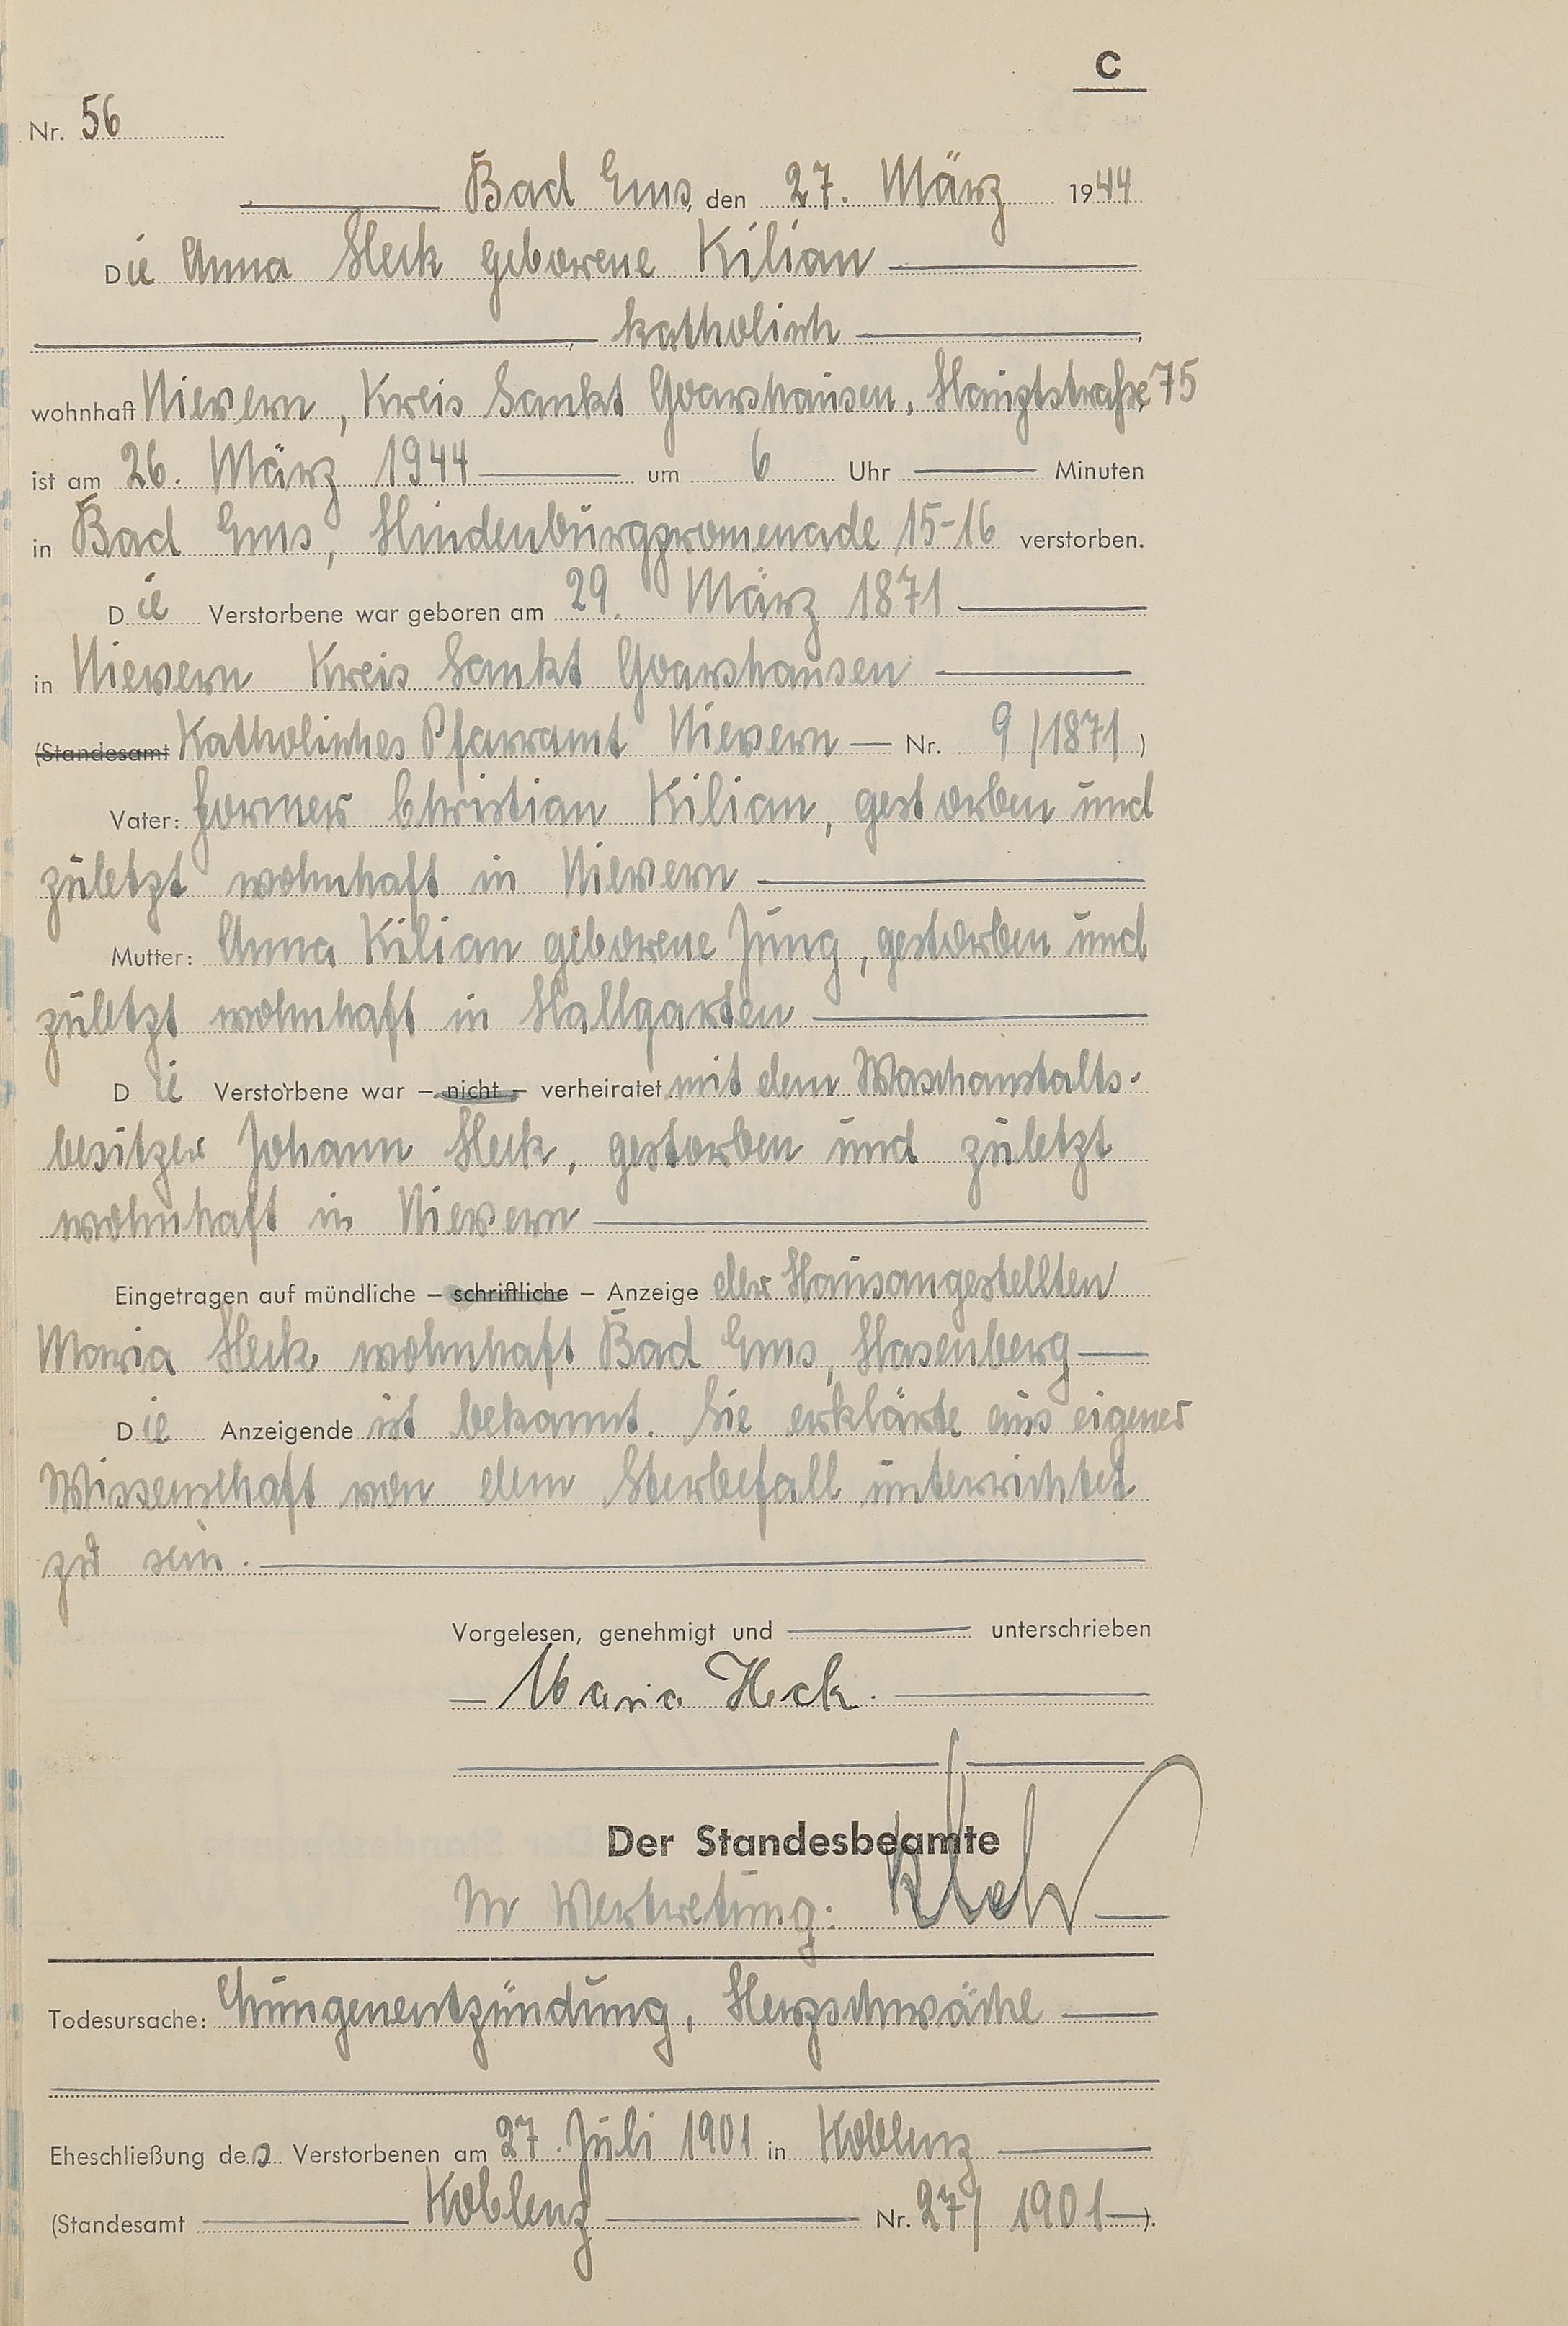 C
Nr. 56
Bad Ems, den 27. März 1944
Die Anna Heck geborene Kilian
, katholisch ,
wohnhaft Nievern, Kreis Sankt Goarshausen, Hauptstraße 75
ist am 26. März 1944 um 6 Uhr Minuten
in Bad Ems, Hindenburgpromenade 15-16 verstorben.
Die Verstorbene war geboren am 29. März 1871
in Nievern Kreis Sankt Goarshausen
(Standesamt Katholisches Pfarramt Nievern Nr. 9/1871)
Vater: Former Christian Kilian, gestorben und
zuletzt wohnhaft in Nievern
Mutter: Anna Kilian geborene Jung, gestorben und
zuletzt wohnhaft in Hallgarten
Die Verstorbene war – nicht – verheiratet mit dem Waschanstalts-
besitzer Johann Heck, gestorben und zuletzt
wohnhaft in Nievern
Eingetragen auf mündliche – schriftliche – Anzeige der Hausangestellten
Maria Heck, wohnhaft Bad Ems, Hasenberg
Die Anzeigende ist bekannt. Sie erklärte aus eigener
Wissenschaft von dem Sterbefall unterrichtet
zu sein.
Vorgelesen, genehmigt und unterschrieben
Maria Heck.
Der Standesbeamte
In Vertretung:
Todesursache: Lungenentzündung, Herzschwäche
Eheschließung der Verstorbenen am 27. Juli 1901 in Koblenz
(Standesamt Koblenz Nr. 27/1901).